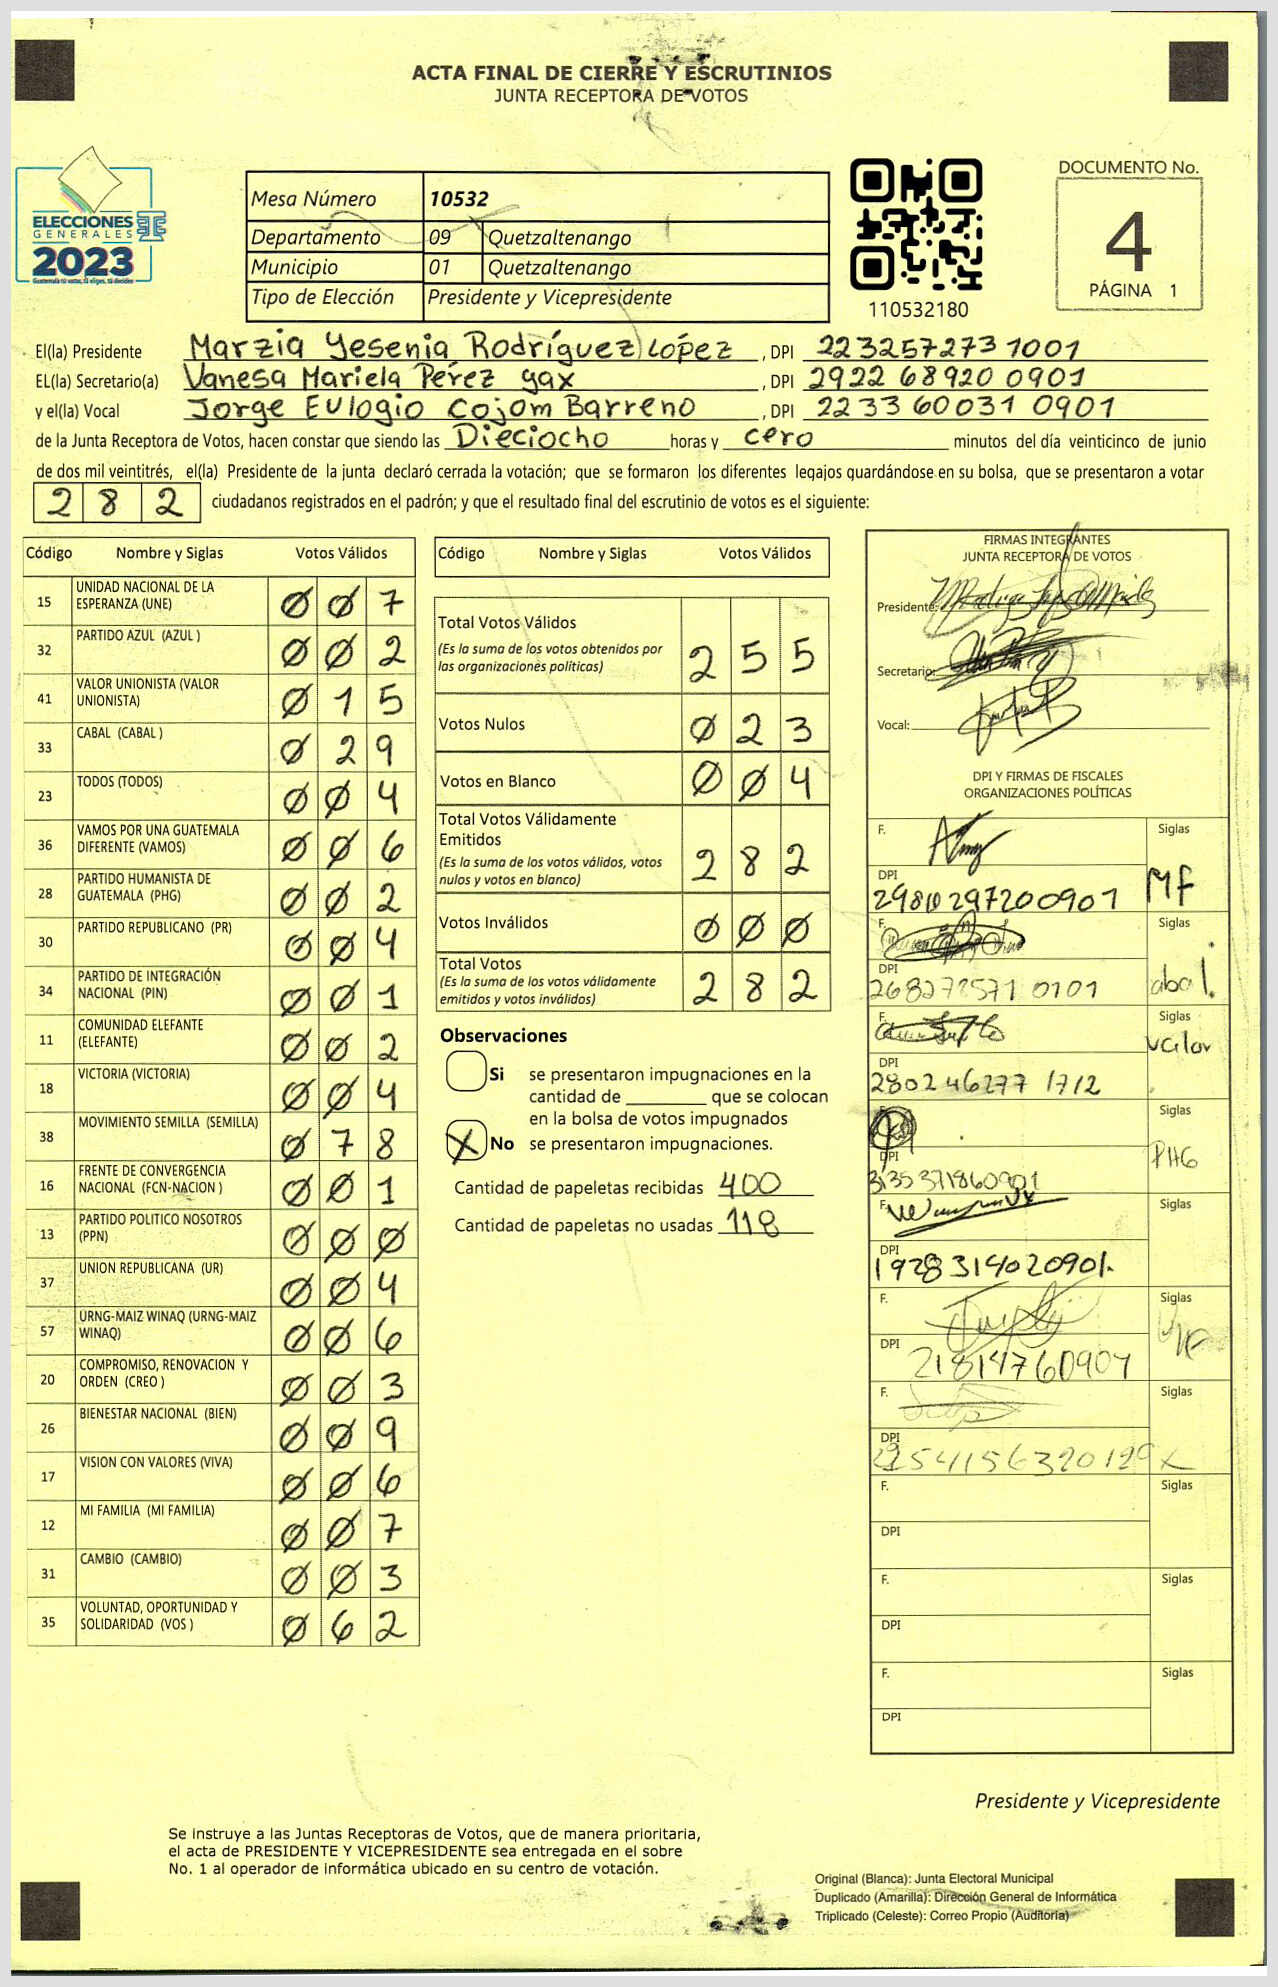 ACTA FINAL DE CIERRE Y ESCRUTINIOS
JUNTA RECEPTORA DE VOTOS
ELECCIONES
GENERALES
2023
Guatemala tú votas, tú eliges, tú decides
Mesa Número 10532
Departamento 09 Quetzaltenango
Municipio 01 Quetzaltenango
Tipo de Elección Presidente y Vicepresidente
110532180
DOCUMENTO No.
4
PÁGINA 1
El(la) Presidente Marzia Yesenia Rodríguez López, DPI 2232572731001
EL(la) Secretario(a) Vanesa Mariela Pérez yax, DPI 2922 68920 0901
y el(la) Vocal Jorge Eulogio Cojom Barreno, DPI 2233 60031 0901
de la Junta Receptora de Votos, hacen constar que siendo las Dieciocho horas y cero minutos del día veinticinco de junio
de dos mil veintitrés, el(la) Presidente de la junta declaró cerrada la votación; que se formaron los diferentes legajos guardándose en su bolsa, que se presentaron a votar
282 ciudadanos registrados en el padrón; y que el resultado final del escrutinio de votos es el siguiente:
Código Nombre y Siglas Votos Válidos
15 UNIDAD NACIONAL DE LA
ESPERANZA (UNE) 0 0 7
32 PARTIDO AZUL (AZUL ) 0 0 2
41 VALOR UNIONISTA (VALOR
UNIONISTA) 0 1 5
33 CABAL (CABAL ) 0 2 9
23 TODOS (TODOS) 0 0 4
36 VAMOS POR UNA GUATEMALA
DIFERENTE (VAMOS) 0 0 6
28 PARTIDO HUMANISTA DE
GUATEMALA (PHG) 0 0 2
30 PARTIDO REPUBLICANO (PR) 0 0 4
34 PARTIDO DE INTEGRACIÓN
NACIONAL (PIN) 0 0 1
11 COMUNIDAD ELEFANTE
(ELEFANTE) 0 0 2
18 VICTORIA (VICTORIA) 0 0 4
38 MOVIMIENTO SEMILLA (SEMILLA) 0 7 8
16 FRENTE DE CONVERGENCIA
NACIONAL (FCN-NACION ) 0 0 1
13 PARTIDO POLITICO NOSOTROS
(PPN) 0 0 0
37 UNION REPUBLICANA (UR) 0 0 4
57 URNG-MAIZ WINAQ (URNG-MAIZ
WINAQ) 0 0 6
20 COMPROMISO, RENOVACION Y
ORDEN (CREO ) 0 0 3
26 BIENESTAR NACIONAL (BIEN) 0 0 9
17 VISION CON VALORES (VIVA) 0 0 6
12 MI FAMILIA (MI FAMILIA) 0 0 7
31 CAMBIO (CAMBIO) 0 0 3
35 VOLUNTAD, OPORTUNIDAD Y
SOLIDARIDAD (VOS ) 0 6 2
Código Nombre y Siglas Votos Válidos
Total Votos Válidos
(Es la suma de los votos obtenidos por
las organizaciones políticas) 2 5 5
Votos Nulos 0 2 3
Votos en Blanco 0 0 4
Total Votos Válidamente
Emitidos
(Es la suma de los votos válidos, votos
nulos y votos en blanco) 2 8 2
Votos Inválidos 0 0 0
Total Votos
(Es la suma de los votos válidamente
emitidos y votos inválidos) 2 8 2
Observaciones
Si se presentaron impugnaciones en la
cantidad de ________ que se colocan
en la bolsa de votos impugnados
X No se presentaron impugnaciones.
Cantidad de papeletas recibidas 400
Cantidad de papeletas no usadas 118
FIRMAS INTEGRANTES
JUNTA RECEPTORA DE VOTOS
Presidente:
Secretario:
Vocal:
DPI Y FIRMAS DE FISCALES
ORGANIZACIONES POLÍTICAS
F. Siglas
DPI MF
F. Siglas
DPI
F. Siglas
valor
DPI
2802 46277 1712
F. Siglas
DPI PHG
F. Siglas
DPI
1928314020901.
F. Siglas
DPI
F. Siglas
DPI
F. Siglas
DPI
F. Siglas
DPI
F. Siglas
DPI
Presidente y Vicepresidente
Se instruye a las Juntas Receptoras de Votos, que de manera prioritaria,
el acta de PRESIDENTE Y VICEPRESIDENTE sea entregada en el sobre
No. 1 al operador de informática ubicado en su centro de votación.
Original (Blanca): Junta Electoral Municipal
Duplicado (Amarilla): Dirección General de Informática
Triplicado (Celeste): Correo Propio (Auditoría)